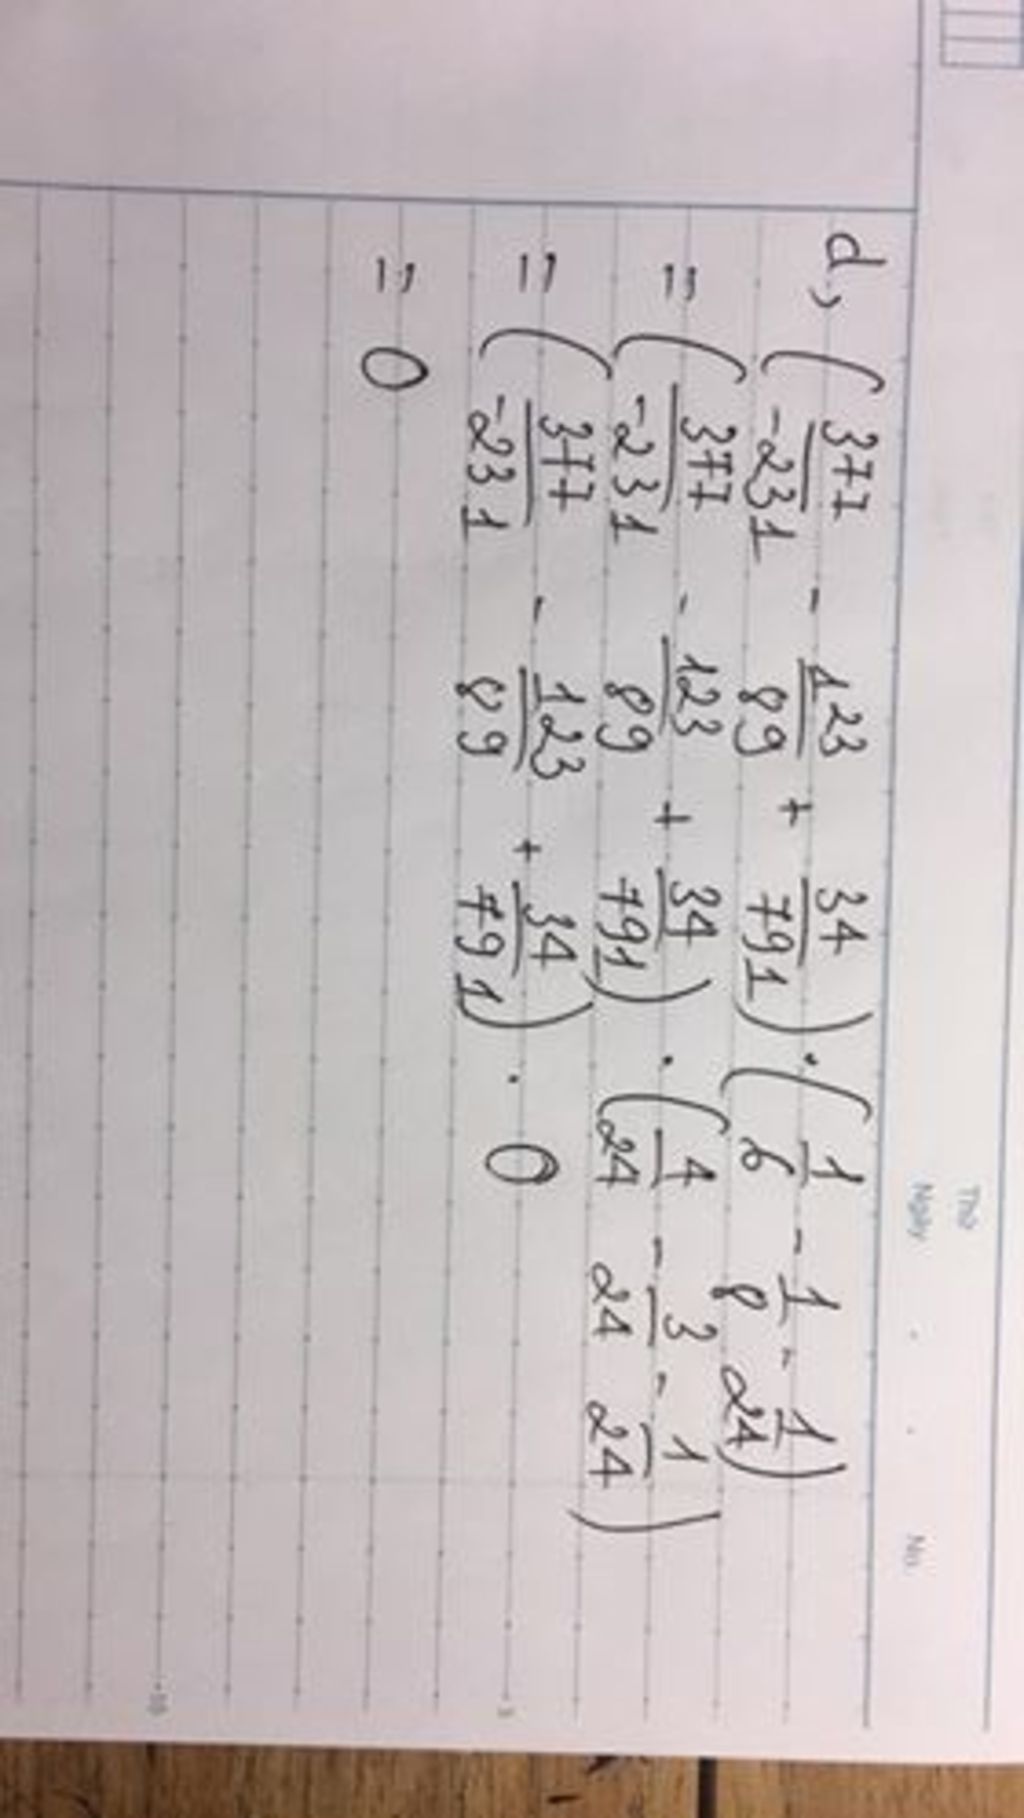 Thứ
Ngày . . No.
d, (377/-231 - 123/89 + 34/791) . (1/6 - 1/8 - 1/24)
= (377/-231 - 123/89 + 34/791) . (4/24 - 3/24 - 1/24)
= (377/-231 - 123/89 + 34/791) . 0
= 0
5
10